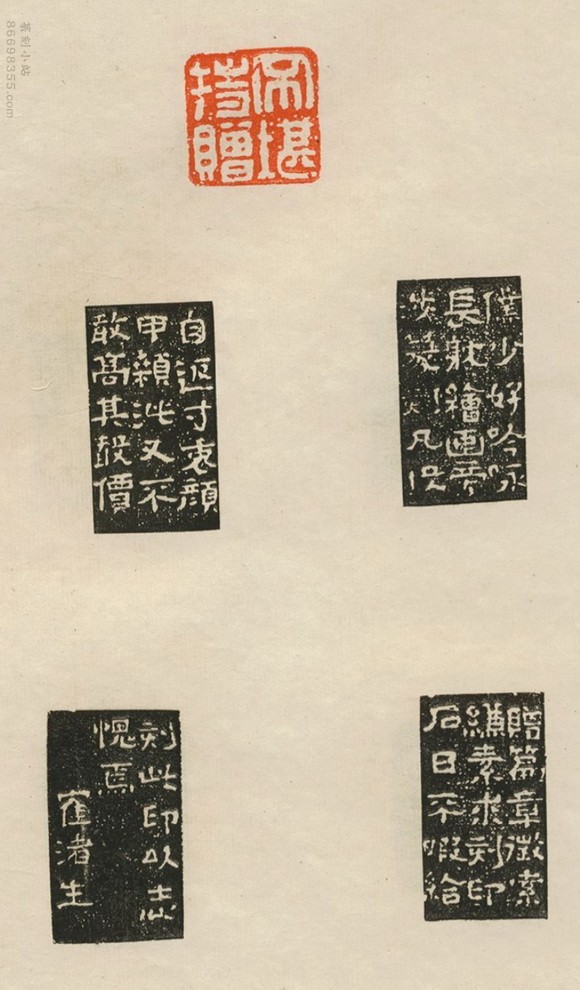 不堪
持贈
僕少好吟咏
長耽繪畫旁
涉篆刻凡投
贈篇章徵索
縑素求刻印
石日不暇給
自返寸衷顔
甲此又不
敢高其聲價
刻此印以志
愧焉
寉渚生
篆刻小站
86698355.com